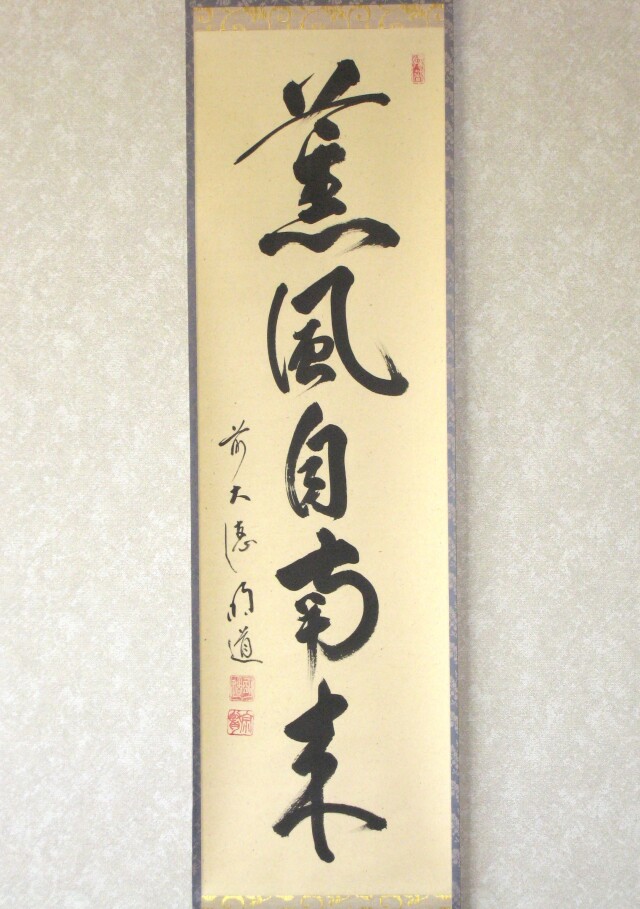 薫風自南来
前大徳明道